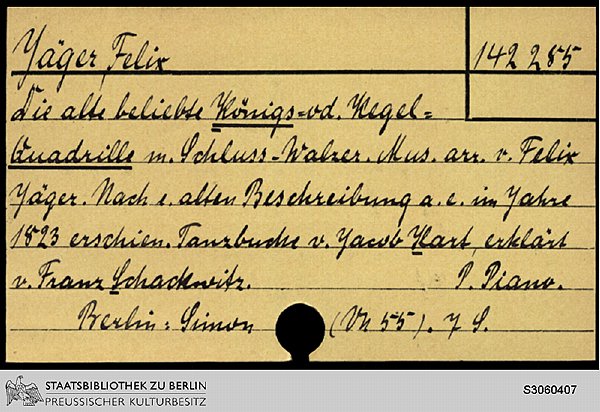 Jäger, Felix
142 285
Die alte beliebte Königs= od. Kegel=
Quadrille m. Schluss-Walzer. Mus. arr. v. Felix
Jäger. Nach e. alten Beschreibung a. e. im Jahre
1823 erschien. Tanzbuche v. Jacob Hart, erklärt
v. Franz Schackwitz. P. Piano.
Berlin: Simon (Vn 55). 7 S.
STAATSBIBLIOTHEK ZU BERLIN
PREUSSISCHER KULTURBESITZ
S3060407